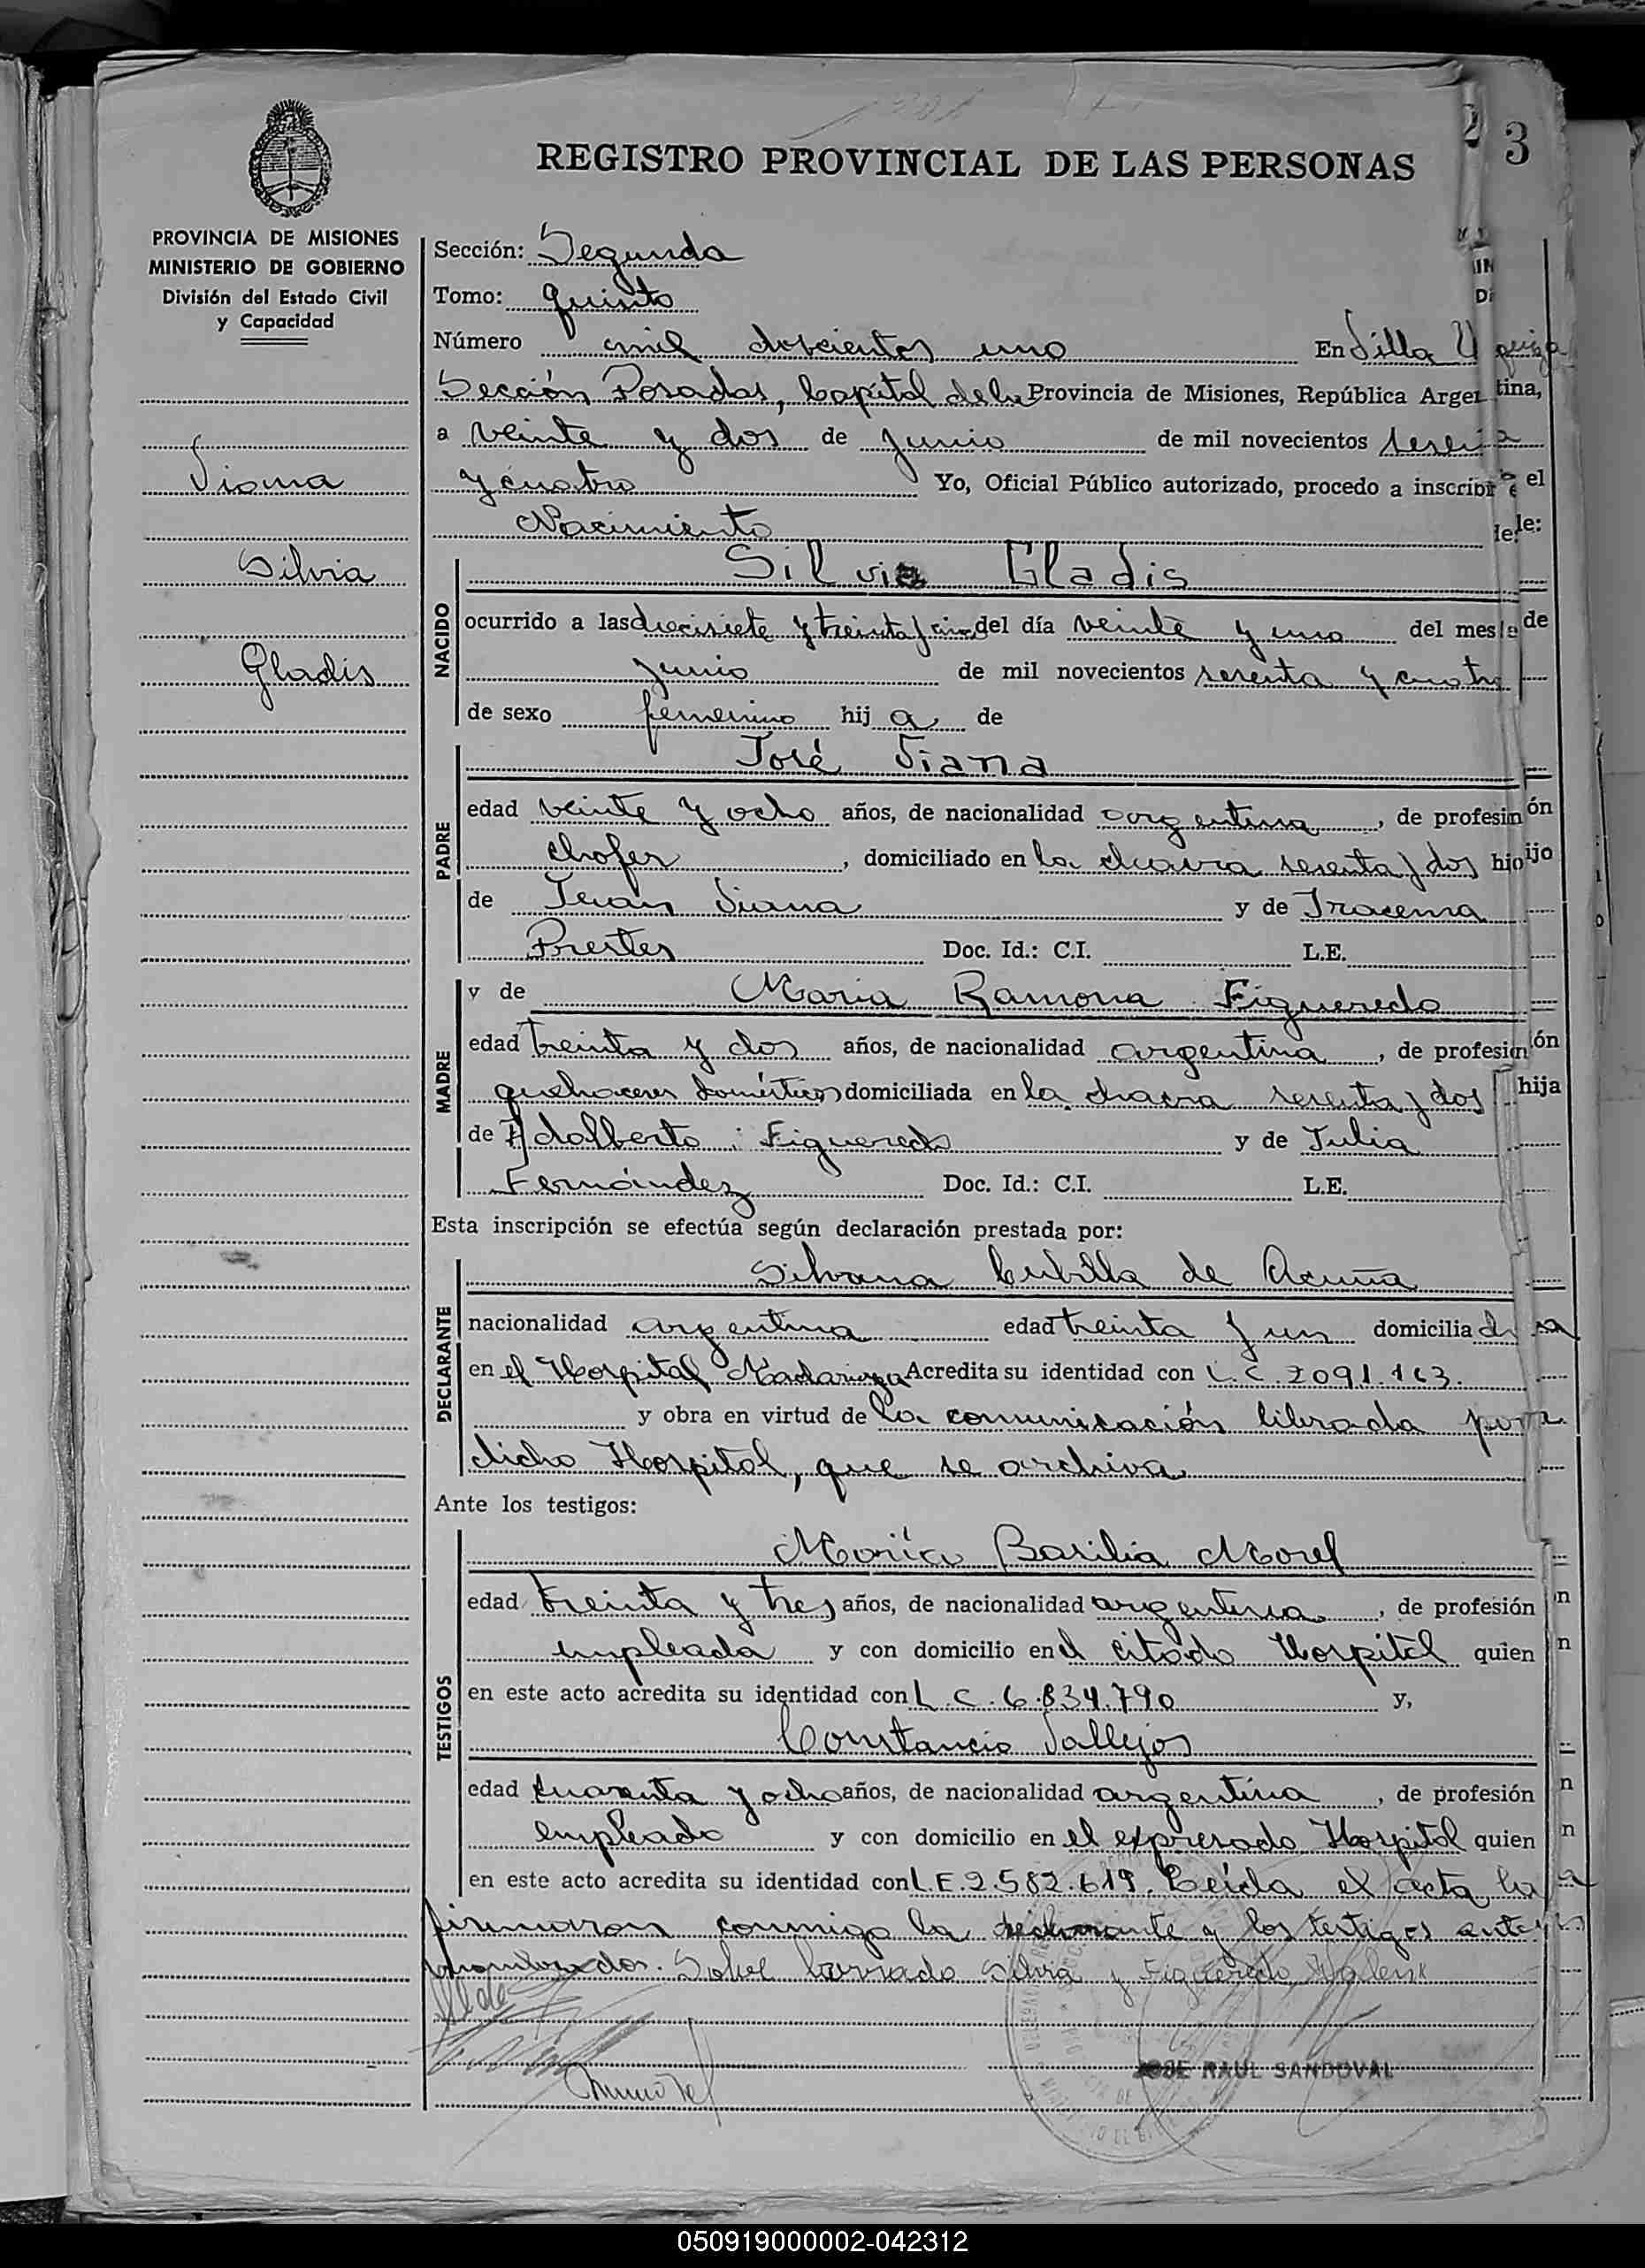 3
REGISTRO PROVINCIAL DE LAS PERSONAS
PROVINCIA DE MISIONES
MINISTERIO DE GOBIERNO
División del Estado Civil
y Capacidad
Viana
Silvia
Gladis
Sección: Segunda
Tomo: quinto
Número mil doscientos uno En Villa Urquiza
Sección Posadas, Capital de la Provincia de Misiones, República Argentina,
a veinte y dos de junio de mil novecientos sesenta
y cuatro Yo, Oficial Público autorizado, procedo a inscribir el
Nacimiento de:
NACIDO
Silvia Gladis
ocurrido a las diecisiete y treinta y cinco del día veinte y uno del mes de
junio de mil novecientos sesenta y cuatro
de sexo femenino hija de
PADRE
José Viana
edad veinte y ocho años, de nacionalidad argentina, de profesión
chofer, domiciliado en la chacra sesenta y dos hijo
de Juan Viana y de Iracema
Prestes Doc. Id.: C.I. L.E.
MADRE
y de María Ramona Figueredo
edad treinta y dos años, de nacionalidad argentina, de profesión
quehaceres domésticos domiciliada en la chacra sesenta y dos hija
de Adalberto Figueredo y de Julia
Fernández Doc. Id.: C.I. L.E.
Esta inscripción se efectúa según declaración prestada por:
DECLARANTE
Silvana Cubilla de Acuña
nacionalidad argentina edad treinta y un domiciliada
en el Hospital Madariaga Acredita su identidad con L.C. 2091.163.
y obra en virtud de la comunicación librada por
dicho Hospital, que se archiva
Ante los testigos:
TESTIGOS
María Basilia Morel
edad treinta y tres años, de nacionalidad argentina, de profesión
empleada y con domicilio en el citado Hospital quien
en este acto acredita su identidad con L.C. 6.834.790 y,
Constancio Vallejos
edad cuarenta y ocho años, de nacionalidad argentina, de profesión
empleado y con domicilio en el expresado Hospital quien
en este acto acredita su identidad con L.E. 2.582.619. Leída el acta la
firmaron conmigo la declarante y los testigos ante
nombrados. Sobre borrado Silvia y Figueredo Valen
JOSE RAUL SANDOVAL
050919000002-042312